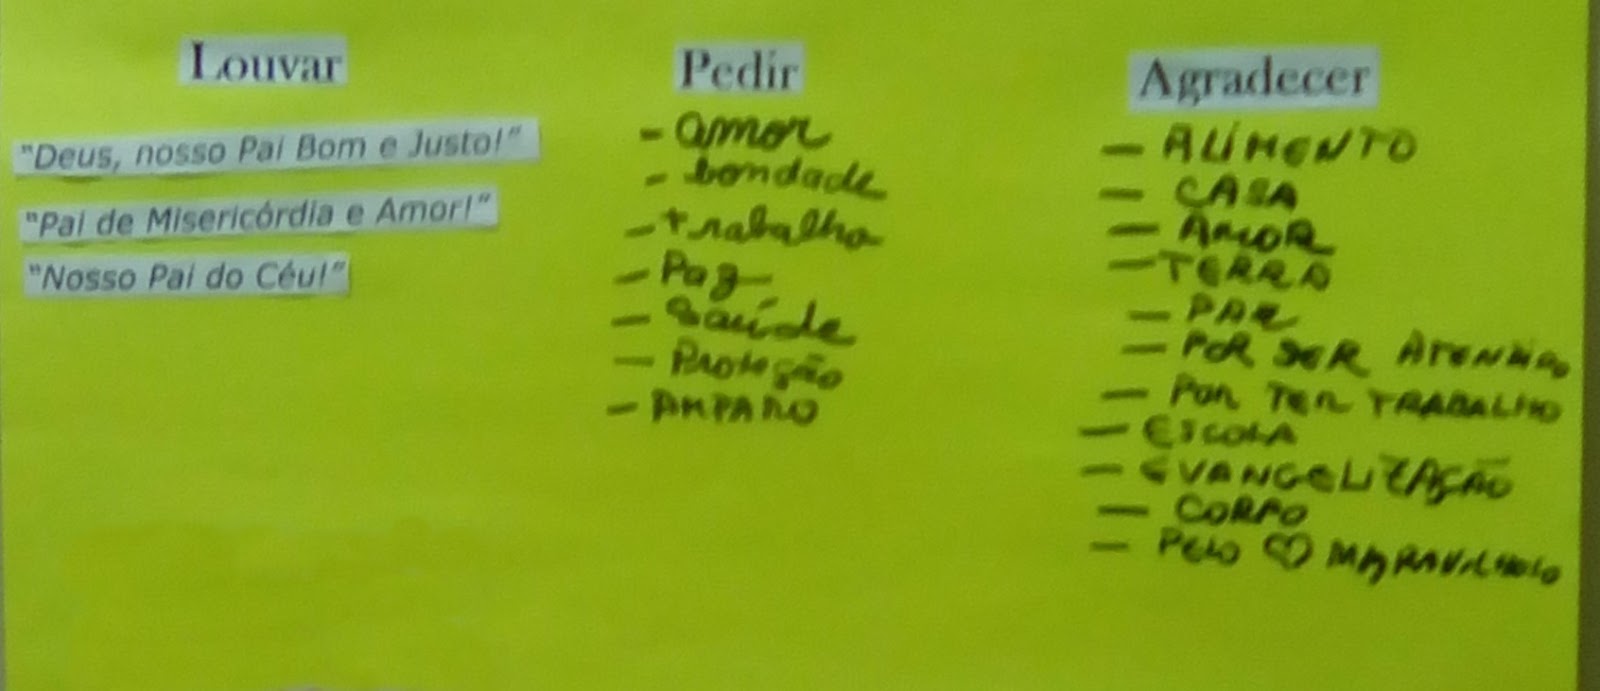 Louvar
"Deus, nosso Pai Bom e Justo!"
"Pai de Misericórdia e Amor!"
"Nosso Pai do Céu!"
Pedir
- amor
- bondade
- trabalho
- Paz
- Saúde
- Proteção
- AMPARO
Agradecer
- ALIMENTO
- CASA
- AMOR
- TERRA
- PAZ
- POR SER ATENDIDO
- POR TER TRABALHO
- ESCOLA
- EVANGELIZAÇÃO
- CORPO
- PELO ♡ MARAVILHOSO